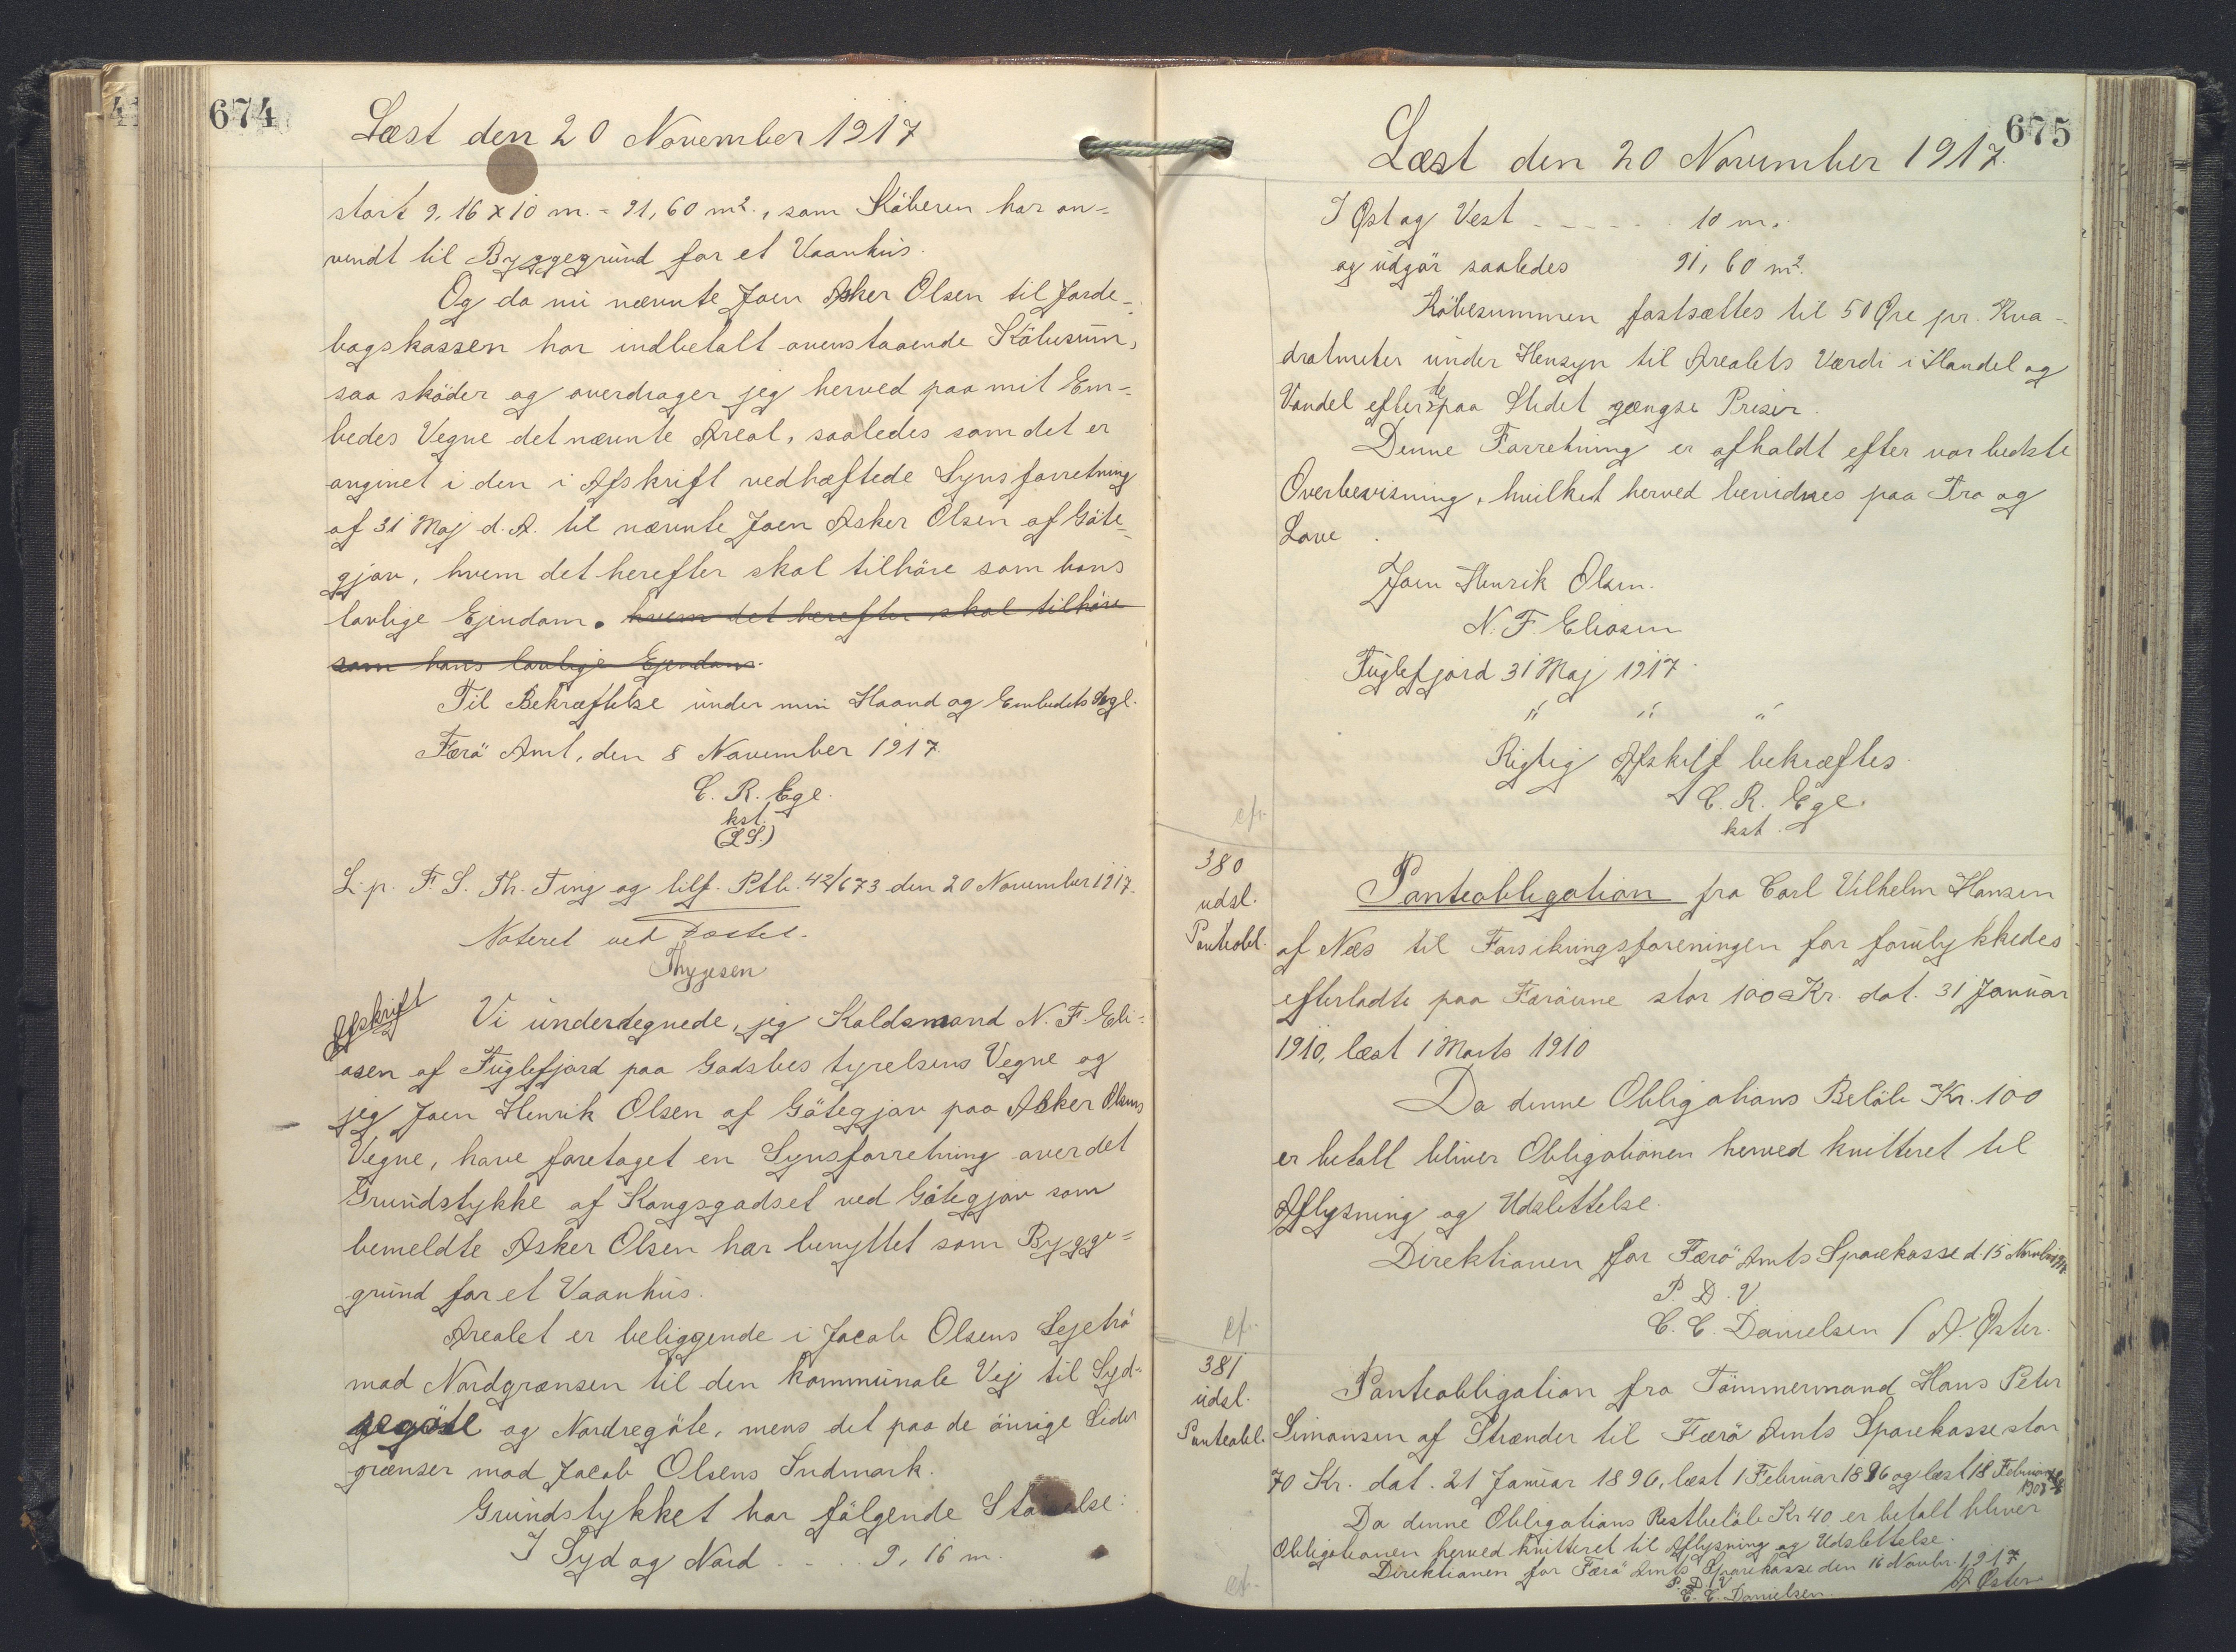 674
Læst den 20 November 1917
stort 9,16 x 10 m. = 91,60 m2., som Köberen har an=
vendt til Byggegrund for et Vaanhus.
Og da nu nævnte Joen Asker Olsen til Jorde-
bogskassen har indbetalt ovenstaaende Köbesum,
saa sköder og overdrager jeg herved paa mit Em-
bedes Vegne det nævnte Areal, saaledes som det er
angivet i den i Afskrift vedhæftede Synsforretning
af 31 Maj d. A. til nævnte Joen Asker Olsen af Göte-
gjov, hvem det herefter skal tilhöre som hans
lovlige Ejendom. hvem det herefter skal tilhöre
som hans lovlige Ejendom.
Til Bekræftelse under min Haand og Embedets Segl.
Færö Amt, den 8 November 1917.
C. R. Ege.
kst.
(L.S.)
L. p. F. S. Th. Ting og tilf. Ptb. 42/673 den 20 November 1917.
Noteret ved
Thygesen
Afskrift
Vi undertegnede, jeg Koldsmand N. F. Eli=
asen af Fuglefjord paa Godsbestyrelsens Vegne og
jeg Joen Henrik Olsen af Götegjov paa Asker Olsens
Vegne, have foretaget en Synsforretning over det
Grundstykke af Kongsgodset ved Götegjov som
bemeldte Asker Olsen har benyttet som Bygge=
grund for et Vaanhus.
Arealet er beliggende i Jacob Olsens Lejetrö
mod Nordgrænsen til den kommunale Vej til Syd=
regöte og Nordregöte, mens det paa de övrige Sider
grænser mod Jacob Olsens Indmark.
Grundstykket har fölgende Störrelse:
I Syd og Nord - . . . 9,16 m.
675
Læst den 20 November 1917.
I Øst og Vest - - - - - 10 m.
og udgör saaledes 91,60 m2.
Köbesummen fastsættes til 50 Øre pr. Kva-
dratmeter under Hensyn til Arealets Værdi i Handel og
Vandel efter de paa Stedet gængse Priser.
Denne Forretning er afholdt efter vor bedste
Overbevisning, hvilket herved bevidnes paa Tro og
Love.
Joen Henrik Olsen.
N. F. Eliasen
Fuglefjord 31 Maj 1917.
" " "
Rigtig Afskrift bekræftes
C. R. Ege.
kst.
cfr.
380
udsl.
Panteobl.
Panteobligation fra Carl Vilhelm Hansen
af Næs til Forsikringsforeningen for forulykkedes
efterladte paa Færöerne stor 100 Kr. dat. 31 Januar
1910, læst 1 Marts 1910
Da denne Obligations Belöb Kr. 100
er betalt bliver Obligationen herved kvitteret til
Aflysning og Udslettelse.
Direktionen for Færö Amts Sparekasse d. 15 Novbr 1917.
P. D. V
C. C. Danielsen / A. Øster.
cfr.
381
udsl.
Panteobl.
Panteobligation fra Tömmermand Hans Peter
Simonsen af Strænder til Færö Amts Sparekasse stor
70 Kr. dat. 21 Januar 1896, læst 1 Februar 1896 og læst 18 Februar
Da denne Obligations Restbelöb Kr 40 er betalt bliver
Obligationen herved kvitteret til Aflysning og Udslettelse.
Direktionen for Færö Amts Sparekasse den 16 Novbr. 1917
P. D. V
C. C. Danielsen. A Øster
cfr.